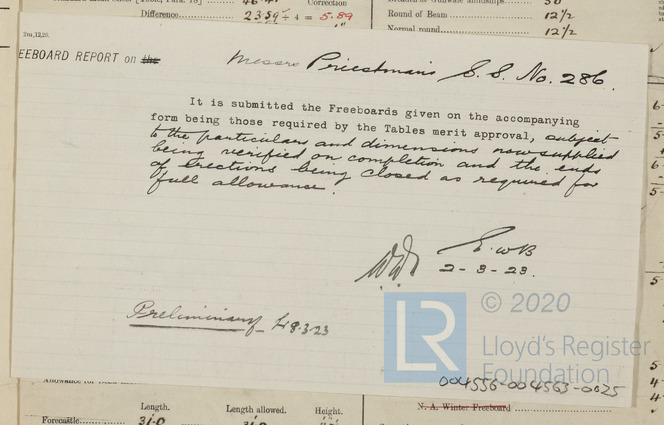 Difference
23.59 ÷ 4 = 5.89
Correction
Round of Beam
12½
Normal round
12½
7m,12,20.
EEBOARD REPORT on the
Messrs Priestman's S.S. No. 286.
It is submitted the Freeboards given on the accompanying
form being those required by the Tables merit approval, subject
to the particulars and dimensions now supplied
being verified on completion and the ends
of erections being closed as required for
full allowance.
2-3-23.
Preliminary 8.3.23
LR
© 2020
Lloyd's Register
Foundation
004556-004563-0025
Length.
Length allowed.
Height.
N. A. Winter Freeboard
Forecastle
31.0